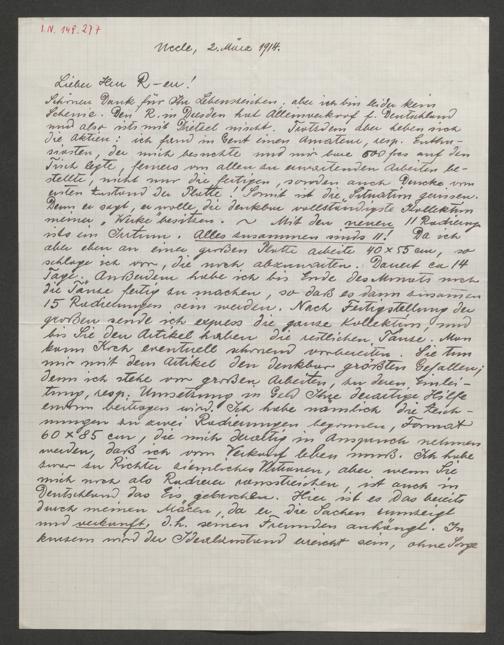 I.N. 149.277
Uccle, 2. März 1914.
Lieber Herr R-er!
Schönen Dank für Ihr Lebenszeichen; aber ich bin leider kein
Schenie. Denn R. in Dresden hat Alleinverkauf f. Deutschland
und also ists mit Dietzel nischt. Trotzdem aber heben sich
die Aktien: ich fand in Gent einen Amateur, resp. Enthu-
siasten, der mich besuchte und mir bare 500 frcs auf den
Tisch legte, ferners von allen zu erwartenden Arbeiten be-
stellte, nicht nur die fertigen, sondern auch Drucke vom
ersten Zustand der Platte! Somit ist die Situation gerissen.
Denn er sagt, er wolle die denkbar vollständigste Kollektion
meiner Werke besitzen. ~ Mit den neuen 11 Radierungen
ists ein Irrtum. Alles zusammen sinds 11! Da ich
aber eben an einer großen Platte arbeite 40 x 55 cm, so
schlage ich vor, die noch abzuwarten. Dauert ca 14
Tage. Außerdem habe ich bis Ende des Monats noch
die Tänze fertig zu machen, so daß es dann zusammen
15 Radierungen sein werden. Nach Fertigstellung der
großen sende ich express die ganze Kollektion, und
bis Sie den Artikel haben die restlichen Tänze. Man
kann Koch eventuell schonend vorbereiten. Sie tun
mir mit dem Artikel den denkbar größten Gefallen;
denn ich stehe vor großen Arbeiten, zu deren Einlei-
tung, resp. Umsetzung in Geld Ihre derartige Hilfe
enorm beitragen wird. Ich habe nämlich die Zeich-
nungen zu zwei Radierungen begonnen, Format
60 x 85 cm, die mich derartig in Anspruch nehmen
werden, daß ich vom Verkauf leben muß. Ich habe
zwar zu Richter ziemliches Vertrauen, aber wenn Sie
mich noch als Radierer rausstreichen, ist auch in
Deutschland das Eis gebrochen. Hier ist es das bereits
durch meinen Mäcen, da er die Sachen rumzeigt
und verkauft, d.h. seinen Freunden anhängt. In
kurzem wird der Idealzustand erreicht sein, ohne Sorge